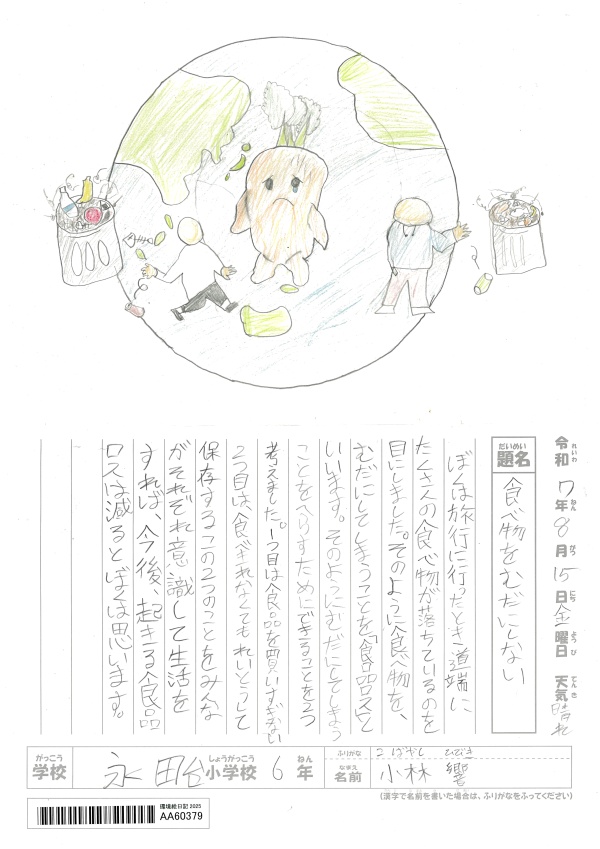 令和7年8月15日金曜日 天気 晴れ
れいわ ねん がつ にち ようび てんき
だいめい
題名
食べ物をむだにしない
ぼくは旅行に行ったとき道端に
たくさんの食べ物が落ちているのを
目にしました。そのように食べ物を、
むだにしてしまうことを「食品ロス」と
いいます。そのようにむだにしてしまう
ことをへらすためにできることを2つ
考えました。1つ目は食品を買いすぎない
2つ目は食べきれなくてもれいとうして
保存するこの2つのことをみんな
がそれぞれ意識して生活を
すれば、今後、起きる食品
ロスは減るとぼくは思います。
がっこう しょうがっこう ねん
学校 永田台小学校 6年
ふりがな こばやし ひびき
なまえ
名前 小林 響
(漢字で名前を書いた場合は、ふりがなをふってください)
環境絵日記 2025
AA60379